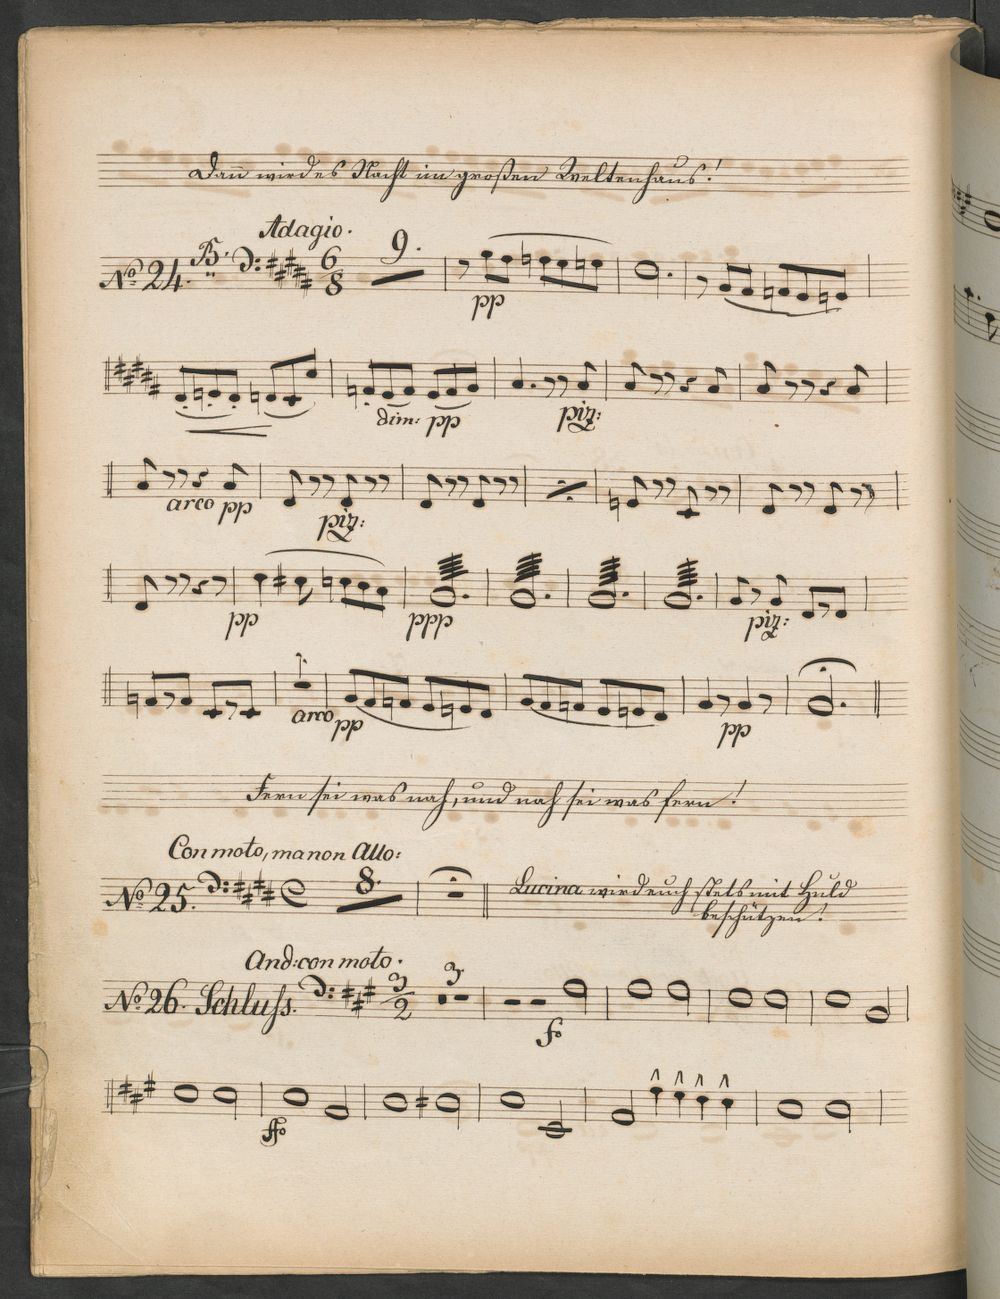 Dann wird es Nacht im großen Weltenhaus!
Adagio.
No. 24. B. 6/8 9.
pp
dim: pp piz:
arco pp piz:
pp ppp piz:
arco pp pp
Fern sei was nah, und nah sei was fern!
Con moto, ma non Allo:
No. 25. 8.
Lucina wird euch stets mit Huld
beschützen!
And: con moto.
No. 26. Schluss. 3/2 3
fo
ffo